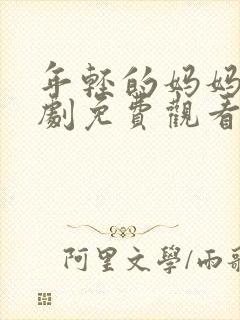 年輕的媽媽
劇免費觀看
阿里文學/雨歌